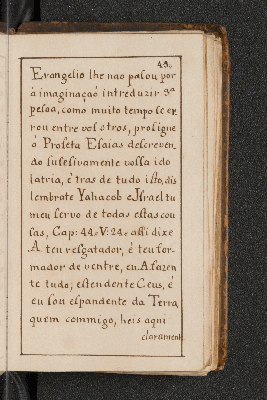 49.
Evangelio lhe nao pasou por
á imaginaçaó intreduzir 3ª
pesoa, como muito tempo se er
rou entre vos otros, prosigue
ó Profeta Esaias descreven
do susesivamente vossa ido
latria, é tras de tudo isto, dis
lembrate Yahacob é Jsrael tu
meu servo de todas estas cou
sas, Cap: 44. V: 24. assi dixe
A. teu resgatador, é teu for-
mador de ventre, eu A. fazen
te tudo; estendente Ceus, é
eu sou espandente da Terra
quem commigo, heis aqui
clarament.